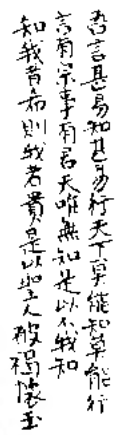 吾言甚易知甚易行天下莫能知莫能行
言有宗事有君夫唯無知是以不我知
知我者希則我者貴是以聖人被褐懷玉